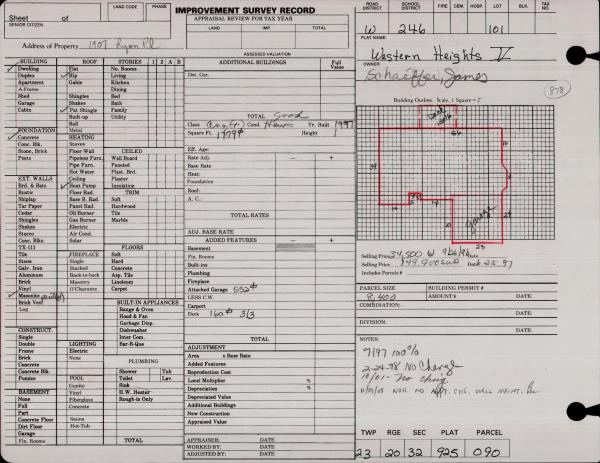 IMPROVEMENT SURVEY RECORD
Sheet of
SENIOR CITIZEN
LAND CODE
PHASE
APPRAISAL REVIEW FOR TAX YEAR
LAND IMP. TOTAL
ROAD DISTRICT
SCHOOL DISTRICT
FIRE CEM. HOSP. LOT BLK. TAX NO.
W 246 101
Address of Property 1907 Lyon Pl
PLAT NAME
Western Heights V
OWNER
Schaeffer, James
878
ASSESSED VALUATION
BUILDING
Dwelling
Duplex
Apartment
A-Frame
Shed
Garage
Cabin
FOUNDATION
Concrete
Conc. Blk.
Stone, Brick
Posts
EXT. WALLS
Brd. & Bats
Rustic
Shiplap
Tar Paper
Cedar
Shingles
Shakes
Stucco
Conc. Blks.
TX-111
Tile
Stone
Galv. Iron
Aluminum
Brick
Vinyl
Masonite
Brick Veil
Log
CONSTRUCT.
Single
Double
Frame
Brick
Concrete
Concrete Blk.
Pumice
BASEMENT
None
Full
Part
Concrete Floor
Dirt Floor
Garage
Fin. Rooms
ROOF
Flat
Hip
Gable
Shingles
Shakes
Pat Shingle
Built-up
Roll
Metal
HEATING
Stoves
Floor-Wall
Pipeless Furn.
Pipe Furn.
Hot Water
Ceiling
Heat Pump
Floor Rad.
Base B. Rad.
Panel Rad.
Oil Burner
Gas Burner
Electric
Air Cond.
Solar
FIREPLACE
Single
Stacked
Back-to-back
Masonry
O'Clearance
LIGHTING
Electric
None
POOL
Gunite
Vinyl
Fiberglass
Concrete
Sauna
Hot-Tub
STORIES 1 2 A B
No. Rooms
Living
Kitchen
Dining
Bed
Bath
Family
Utility
CEILED
Wall Board
Paneled
Plast. Brd.
Plaster
Insulation
TRIM
Soft
Hardwood
Tile
Marble
FLOORS
Soft
Hard
Concrete
Asp. Tile
Linoleum
Carpet
BUILT-IN APPLIANCES
Range & Oven
Hood & Fan
Garbage Disp.
Dishwasher
Inter Com.
Bar-B-Que
PLUMBING
Shower Tub
Toilet Lav.
Sink
H.W. Heater
Rough-in Only
TOTAL
ADDITIONAL BUILDINGS Full Value
Det. Car.
TOTAL
Good
Class Cond. New Yr. Built 1997
Square Ft. 1779 Height 1
Eff. Age:
Rate Adj. — +
Base Rate
Heat:
Foundation:
Roof:
A. C.:
TOTAL RATES
ADJ. BASE RATE
ADDED FEATURES — +
Basement
Fin. Rooms
Built-ins
Plumbing
Fireplace
Attached Garage 552
LESS C.W.
Carport
Deck 160 3/3
TOTAL
ADJUSTMENT
Area x Base Rate
Added Features
Reproduction Cost
Local Multiplier %
Depreciation %
Depreciated Value
Additional Buildings
New Construction
Appraised Value
APPRAISER: DATE
WORKED BY: DATE
ADJUSTED BY: DATE
Building Outline. Scale, 1 Square =
56
34
garage
24
23
Selling Price 34,500 W 9/26/96 Date
Selling Price 149,900 Date 2-25-97
Includes Parcels #
PARCEL SIZE
8,400
BUILDING PERMIT #
AMOUNT $ DATE:
COMBINATION:
DATE:
DIVISION:
DATE:
NOTES:
7/97 100%
2-24-98 No Change
10/01 - No chng
TWP RGE SEC PLAT PARCEL
23 20 32 925 090